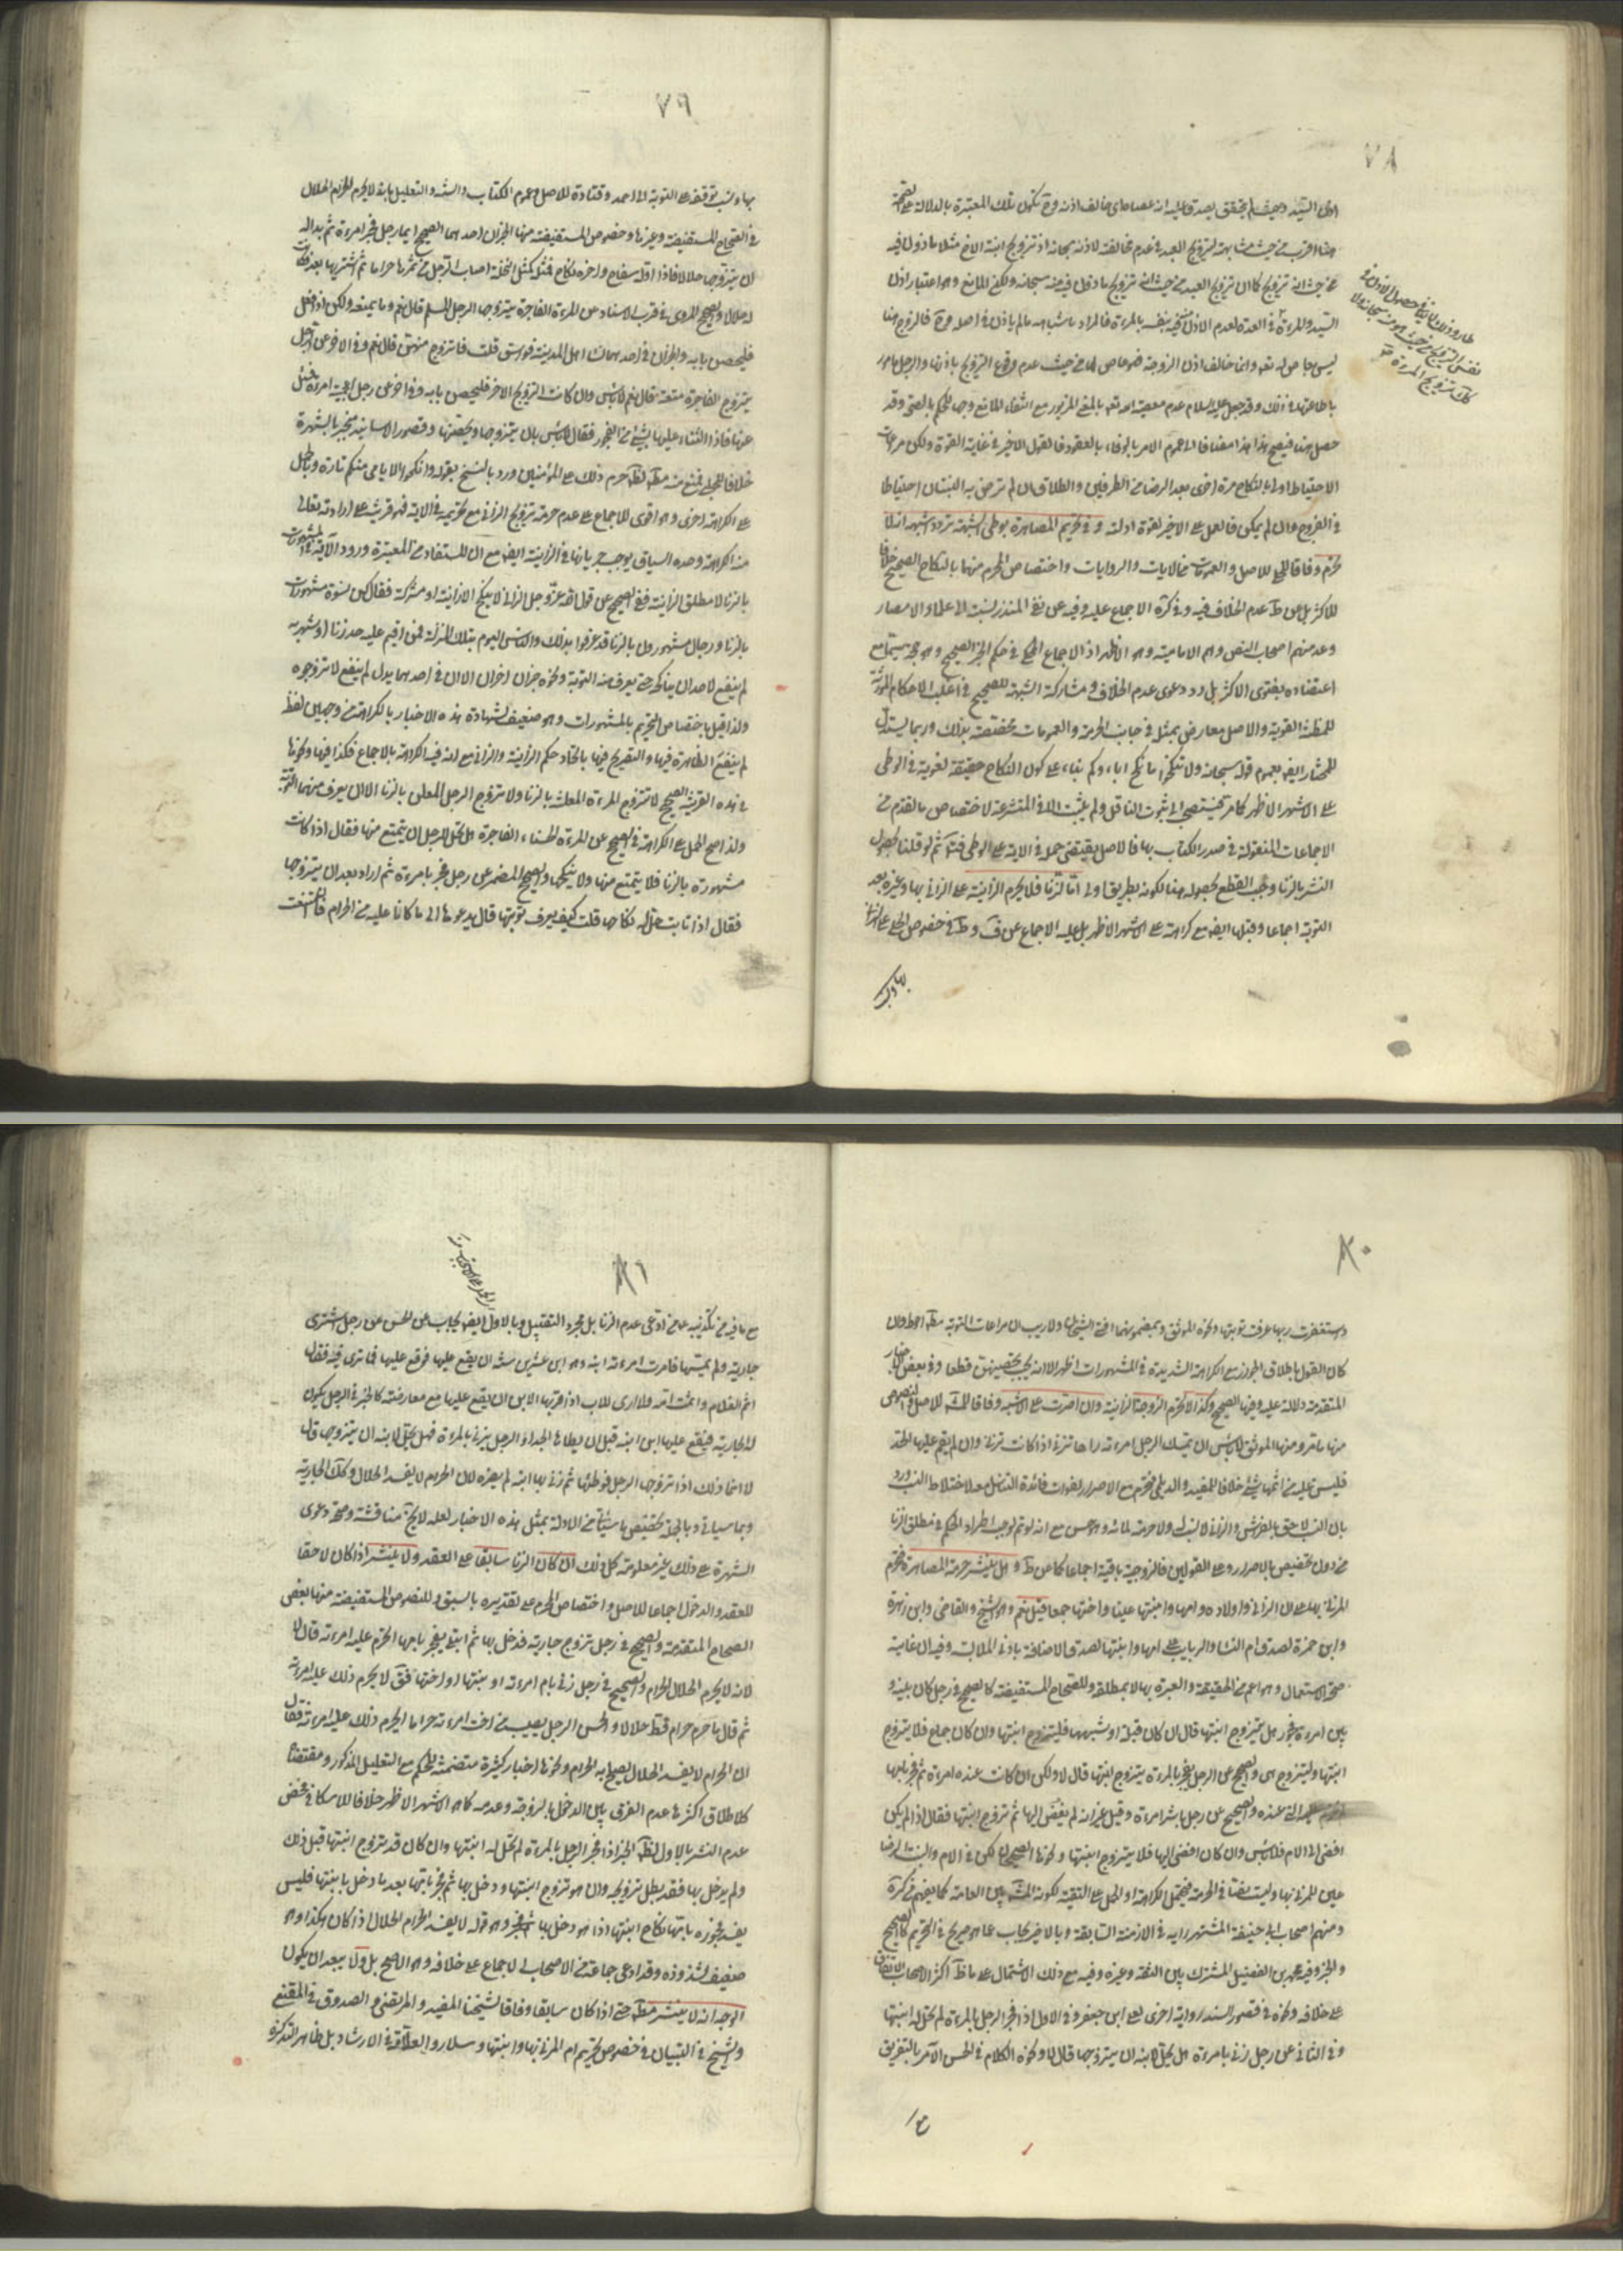 ٧٨
اذن السيد وحيث لم يتحقق يصدق عليه انه عصاه اى خالف اذنه وح تكون تلك المعتبرة بالدلالة على الصحة
هنا اقرب من حيث مشابهته لتزويج العبد في عدم مخالفة لاذنه سبحانه اذ تزويج ابنة الاخ مثلا ماذون فيه
من حيث انه تزويج كما ان تزويج العبد من حيث انه تزويج ماذون فيه منه سبحانه ولكن المانع وهو اعتبار اذن
ليس بعاص لله تعالى وانما خالف اذن الزوجة فهو عاص لها من حيث عدم وقوع التزويج باذنها والرجل مامور
باطاعتها في ذلك وقد جعل عليه السلام عدم معصية الله تعالى بالمعنى المزبور مع انتفاء المانع وجها للحكم بالصحة وقد
حصل هنا فيصح هذا مضافا الى عموم الامر بالوفاء بالعقود فالقول الاخير في غاية القوة ولكن مراعات
الاحتياط اولى بالنكاح مرة اخرى بعد الرضا من الطرفين والطلاق ان لم ترض به البنتان احتياطا
في الفروج وان لم يمكن فالعمل على الاخير لقوة ادلته وفي تحريم المصاهرة بوطى الشبهة تردد اشبهه انه لا
يحرم وفاقا للحلي للاصل والعمومات من الايات والروايات واختصاص المحرم منها بالنكاح الصحيح خلافا
للاكثر بل عن ط عدم الخلاف فيه وفي كرة الاجماع عليه وفيه عن ابن المنذر نسبته الى علماء الامصار
وعد منهم اصحاب النص وهم الامامية وهو الاظهر اذ الاجماع المحكي في حكم الخبر الصحيح وهو حجة سيما مع
اعتضاده بفتوى الاكثر بل ودعوى عدم الخلاف ومشاركة الشبهة للصحيح في اغلب الاحكام المورثة
للمظنة القوية والاصل معارض بمثله في جانب الحرمة والعمومات مخصصة بذلك وربما يستدل
للمختار ايضا بعموم قوله سبحانه ولا تنكحوا ما نكح اباؤكم بناء على كون النكاح حقيقة لغوية في الوطى
على الاشهر الاظهر كما مر فيستصحب الى ثبوت الناقل ولم يثبت الا في المتشرعة لاختصاص ما تقدم من
الاجماعات المنقولة في صدر الكتاب بها فالاصل يقتضي حمله في الاية على الوطى فتأمل ثم لو قلنا بحصول
النشر بالزنا وجب القطع بحصوله هنا لكونه بطريق اولى اما الزنا فلا يحرم الزانية على الزاني بها وغيره بعد
التوبة اجماعا وقبلها ايضا مع كراهة على الاشهر الاظهر بل عليه الاجماع عن ف وط في خصوص الحل على الزاني
بها و
٧٩
بها ونسب توقفه على التوبة الى احمد وقتادة للاصل وعموم الكتاب والسنة والتعليل بانه لا يحرم الحرام الحلال
في الصحاح المستفيضة وغيرها وخصوص المستفيضة منها الخبران احدهما الصحيح ايما رجل فجر بامرءة ثم بدا له
ان يتزوجها حلالا فاذا اوله سفاح واخره نكاح فمثله كمثل النخلة اصاب الرجل من ثمرها حراما ثم اشتريها بعد فكانت
له حلالا والصحيح المروى في قرب الاسناد عن المرءة الفاجرة يتزوجها الرجل المسلم قال نعم وما يمنعه ولكن اذا فعل
فليحصن بابه والخبران في احدهما نساء اهل المدينة فواسق قلت فاتزوج منهن قال نعم وفي الاخر عن الرجل
يتزوج الفاجرة متعة قال نعم لا باس وان كانت التزويج الاخر فليحصن بابه وفي اخر عن رجل اعجبته امرءة فسئل
عنها فاذا الثناء عليها بشىء من الفجور فقال لا باس بان يتزوجها ويحصنها وقصور الاسانيد منجبر بالشهرة
بالزنا لا مطلق الزانية ففي الصحيح عن قول الله عز وجل الزاني لا ينكح الا زانية او مشركة فقال كن نسوة مشهورات
بالزنا ورجال مشهورون بالزنا قد عرفوا بذلك والناس اليوم بتلك المنزلة فمن اقيم عليه حد زنا او شهر به
لم ينبغ لاحد ان يناكحه حتى يعرف منه التوبة ونحوه خبران اخران الا ان في احدهما بدل لم ينبغ لا تزوجوه
ولذا قيل باختصاص التحريم بالمشهورات وهو ضعيف لشهادة هذه الاخبار بالكراهة من وجهين لفظ
لم ينبغ الظاهرة فيها والتصريح فيها باتحاد حكم الزانية والزاني مع انه فيه الكراهة بالاجماع فكذا فيها ونحوها
في هذه القرينة الصحيح لا تتزوج المرءة المعلنة بالزنا ولا يتزوج الرجل المعلن بالزنا الا ان يعرف منهما التوبة
ولذا صح الحمل على الكراهة في الصحيح عن المرءة الحسناء الفاجرة هل تحل للرجل ان يتمتع منها فقال اذا كانت
مشهورة بالزنا فلا يتمتع منها ولا ينكحها والصحيح المضمر عن رجل فجر بامرءة ثم اراد بعد ان يتزوجها
فقال اذا تابت حل له نكاحها قلت كيف يعرف توبتها قال يدعوها الى ما كانا عليه من الحرام فان امتنعت
٨٠
واستغفرت ربها عرف توبتها ونحوه الموثق وبمضمونهما افتى الشيخان ولا ريب ان مراعات التوبة مط احوط وان
كان القول باطلاق الجواز مع الكراهة الشديدة في المشهورات اظهر الا انه يجب تحصينهن قطعا وفي بعض الاخبار
المتقدمة دلالة عليه وفيها الصحيح وكذا لا تحرم الزوجة الزانية وان اصرت على الاشبه وفاقا للمش للاصل والنصوص
منها ما مر ومنها الموثق لا باس ان يمسك الرجل امرءته ان راها تزني اذا كانت تزني وان لم يقم عليها الحد
فليس عليه من اثمها شىء خلافا للمفيد والديلمي فتحرم مع الاصرار لفوات فائدة التناسل معه لاختلاط النسب ورد
بان النسب لاحق بالفراش والزاني لا نسب له ولا حرمة لمائه وهو حسن مع انه لو تم لوجب اطراد الحكم في مطلق الزنا
من دون تخصيص بالاصرار وعلى القولين فالزوجية باقية اجماعا كما عن ط وهل ينشر حرمة المصاهرة فتحرم
المزني بها على اب الزاني واولاده وامها وابنتها عينا واختها جمعا قيل نعم وهو الشيخ والقاضي وابن زهرة
وابن حمزة لصدق ام النساء والربائب على امها وابنتها لصدق الاضافة بادنى الملابسة وفيه ان غايته
صحة الاستعمال وهو اعم من الحقيقة والعبرة بها لا بمطلقه وللصحاح المستفيضة كالصحيح في رجل كان بينه و
بين امرءة فجور هل يتزوج ابنتها قال ان كان قبلة او شبهها فليتزوج ابنتها وان كان جماع فلا يتزوج
ابنتها وليتزوج هي والصحيح عن الرجل يفجر بالمرءة يتزوج ابنتها قال لا ولكن ان كانت عنده امرءة ثم فجر بامها
التي عنده والصحيح عن رجل باشر امرءة وقبل غير انه لم يفض اليها ثم تزوج ابنتها فقال اذا لم يكن
افضى الى الام فلا باس وان كان افضى اليها فلا يتزوج ابنتها ونحوها الصحيحان لكن في الام والبنت رضاعا
عين للمزني بها وليست نصا في الحرمة فيحتمل الكراهة او الحمل على التقية لكونه المش بين العامة كما يفهم من كرة
ومنهم اصحاب ابي حنيفة المشتهر رايه في الازمنة السابقة وبالاخير يجاب عما هو صريح في التحريم كالصحيح
والخبر وفيه محمد بن الفضيل المشترك بين الثقة وغيره وفيه مع ذلك الاشتمال على ما ظ اكثر الاصحاب الاتفاق
على خلافه ونحوه في قصور السند رواية اخرى لعلي بن جعفر وفي الاول اذا فجر الرجل بالمرءة لم تحل له ابنتها
وفي الثاني عن رجل زنى بامرءة هل يحل لابنه ان يتزوجها قال لا ونحوه الكلام في الحسن الآمر بالتفريق
مع
٨١
مع ما فيه من تكذيبه عن ادعى عدم الزنا بل مجرد التقبيل وبالاول ايضا يجاب عن الحسن عن رجل اشترى
جارية ولم يمسها فامرت امرءته ابنه وهو ابن عشر سنين ان يقع عليها فوقع عليها فما ترى فيه فقال
اثم الغلام واثمت امه ولا ارى للاب اذا قربها الابن ان يقع عليها مع معارضته كالخبر في الرجل يكون
له الجارية فيقع عليها ابن ابنه قبل ان يطاها الجد او الرجل يزني بالمرءة فهل يحل لابنه ان يتزوجها قال
لا انما ذلك اذا تزوجها الرجل فوطئها ثم زنى بها ابنه لم يضره لان الحرام لا يفسد الحلال وكذلك الجارية
وبما سياتي وبالجملة تخصيص ما سياتي من الادلة بمثل هذه الاخبار لعله لا يخ مناقشة وصحة دعوى
الشهرة على ذلك غير معلومة كل ذلك ان كان الزنا سابقا على العقد ولا ينشر اذا كان لاحقا
للعقد والدخول اجماعا للاصل واختصاص المحرم على تقديره بالسبق وللنصوص المستفيضة منها بعض
الصحاح المتقدمة والصحيح في رجل تزوج جارية فدخل بها ثم ابتلى ففجر بامها اتحرم عليه امرءته قال لا
لانه لا يحرم الحلال الحرام والصحيح في رجل زنى بام امرءته او بنتها او اختها فق لا يحرم ذلك عليه امرءته
ثم قال ما حرم حرام قط حلالا والحسن الرجل يصيب من اخت امرءته حراما ايحرم ذلك عليه امرءته فقال
ان الحرام لا يفسد الحلال يصلح به الحرام ونحوها اخبار كثيرة متضمنة للحكم مع التعليل المذكور ومقتضى
كلا طلاق اكثرها عدم الفرق بين الدخول بالزوجة وعدمه كما هو الاشهر الاظهر خلافا للاسكافي فخص
عدم النشر بالاول لظ الخبر اذا فجر الرجل بالمرءة لم تحل له ابنتها وان كان قد تزوج ابنتها قبل ذلك
ولم يدخل بها فقد بطل تزويجه وان هو تزوج ابنتها ودخل بها ثم فجر بامها بعد ما دخل بابنتها فليس
يفسد فجوره بامها نكاح ابنتها اذا هو دخل بها ثم فجر وهو قوله لا يفسد الحرام الحلال اذا كان هكذا وهو
ضعيف لشذوذه وقد ادعى جماعة من الاصحاب الاجماع على خلافه وهو الاصح بل ولا يبعد ان يكون
الوجه انه لا ينشر مط حتى اذا كان سابقا وفاقا لشيخنا المفيد والمرتضى والصدوق في المقنع
والشيخ في التبيان في خصوص تحريم ام المزني بها وابنتها وسلار والعلامة في الارشاد بل ظاهر التذكرة